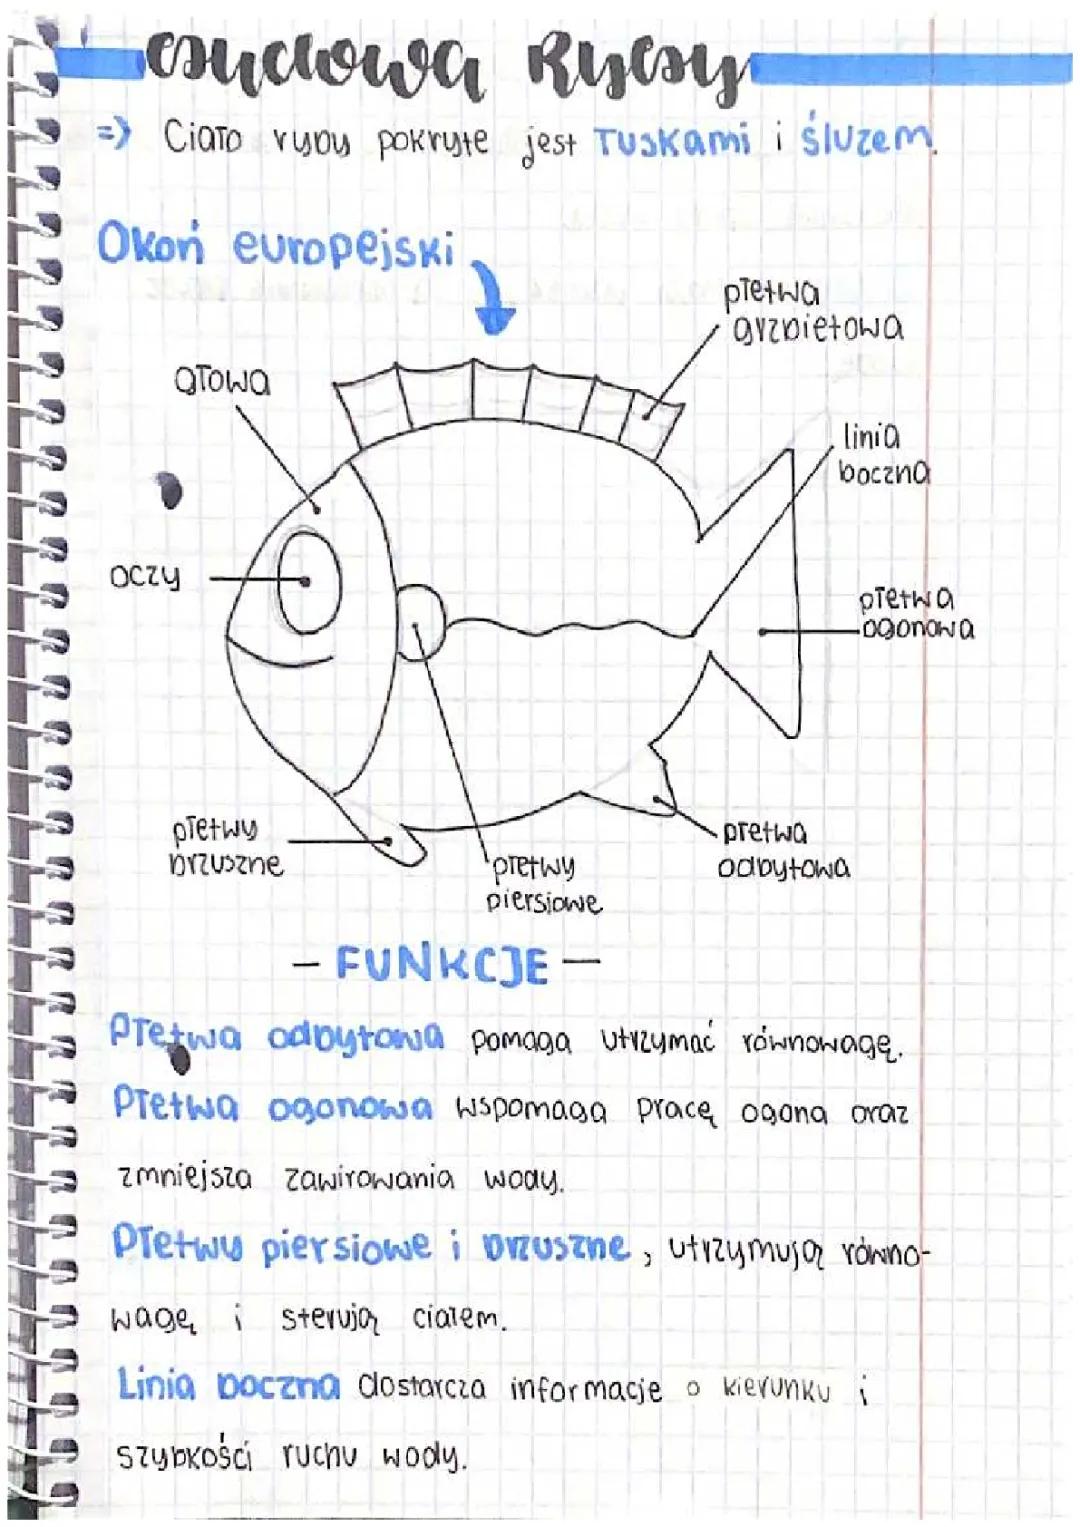 Budowa Ryby
=> Ciało ryby pokryte jest łuskami i śluzem.
Okoń europejski
płetwa
grzbietowa
głowa
linia
boczna
oczy
płetwa
ogonowa
płetwy
brzuszne
płetwy
piersiowe
płetwa
odbytowa
- FUNKCJE -
Płetwa odbytowa pomaga utrzymać równowagę.
Płetwa ogonowa wspomaga pracę ogona oraz
zmniejsza zawirowania wody.
Płetwy piersiowe i brzuszne, utrzymują równo-
wagę i sterują ciałem.
Linia boczna dostarcza informacje o kierunku i
szybkości ruchu wody.